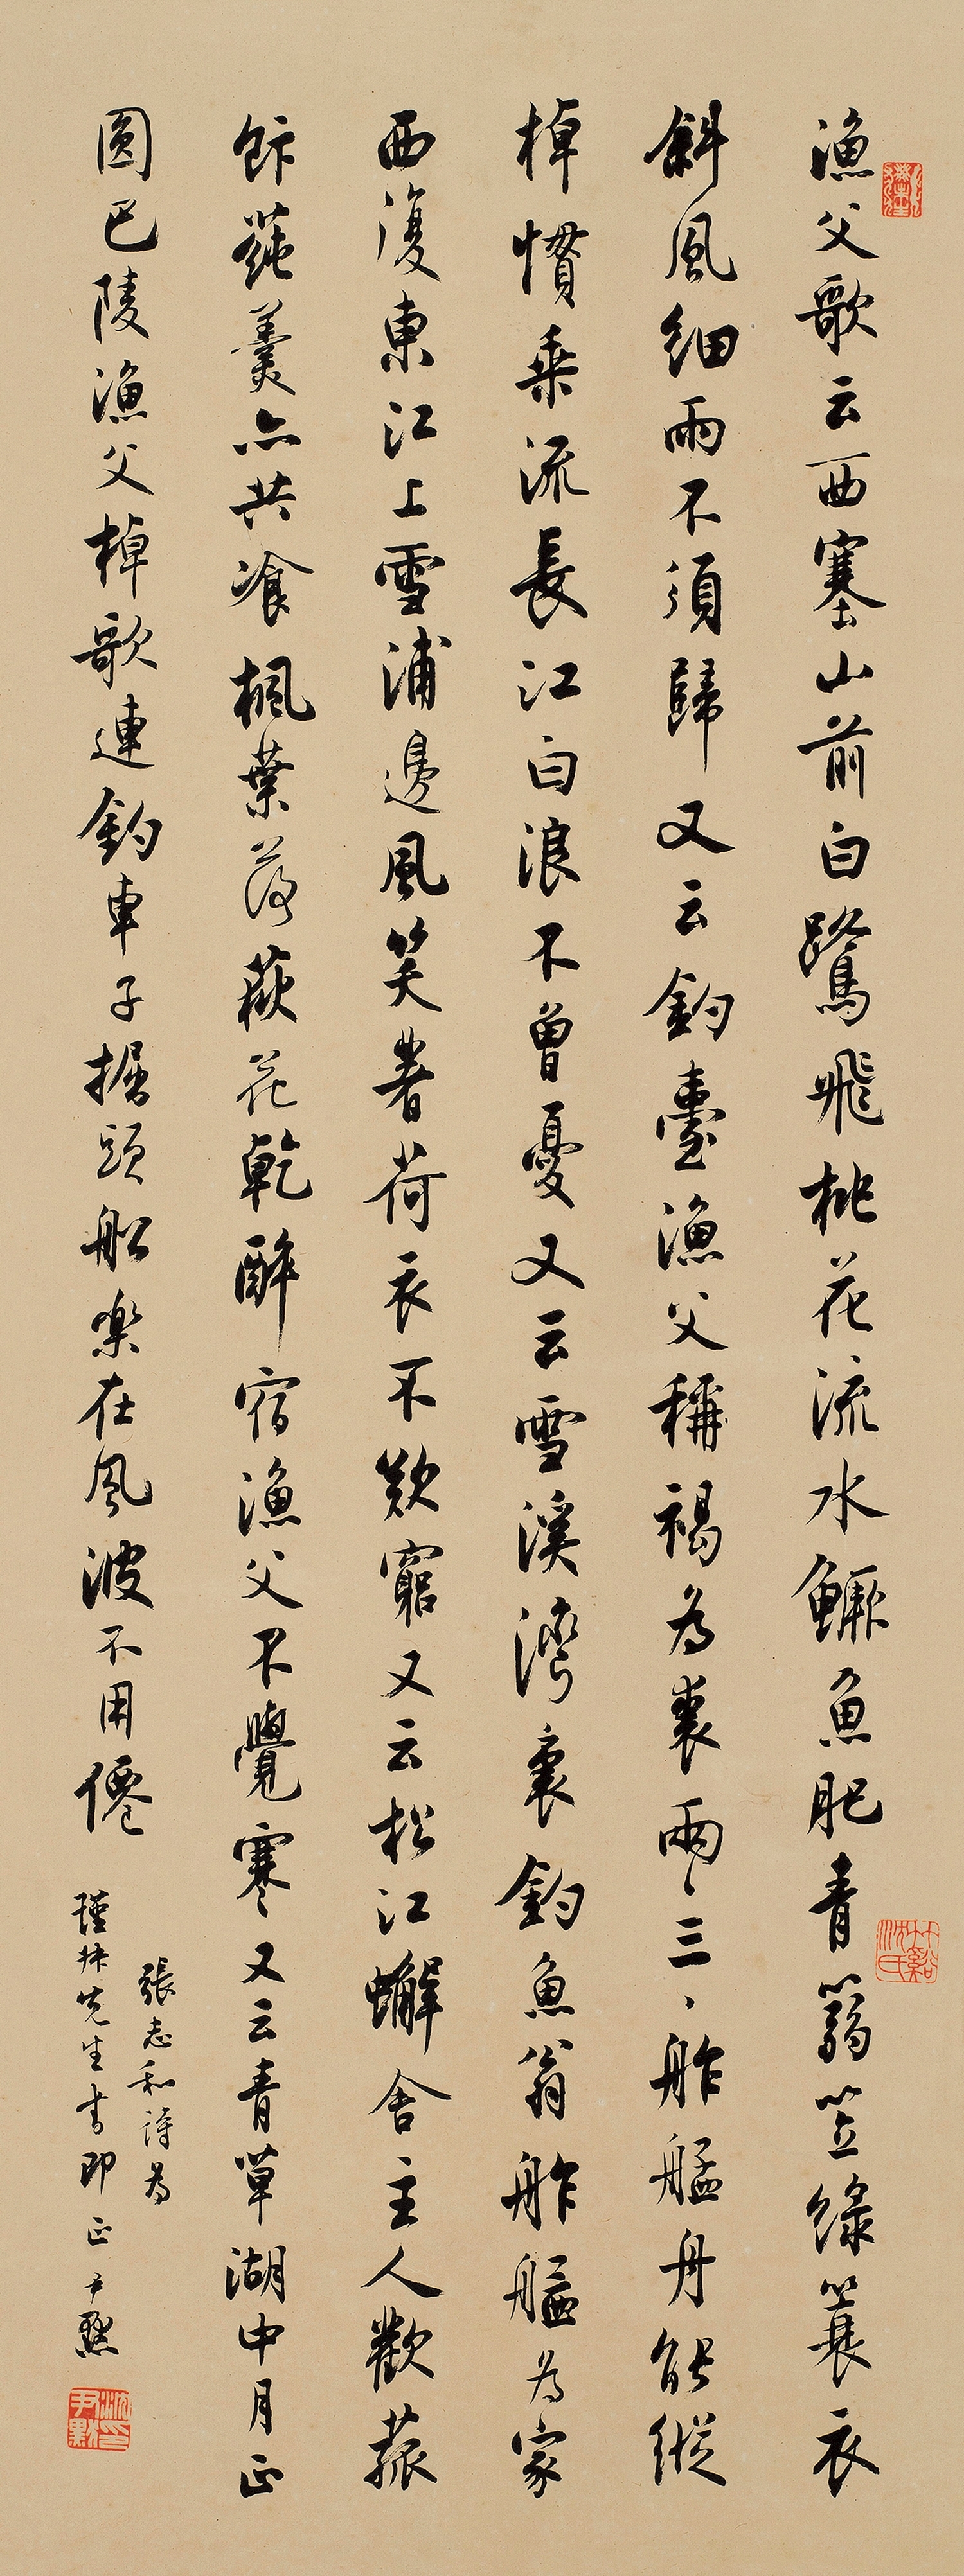 漁父歌云西塞山前白鷺飛桃花流水鱖魚肥青篛笠綠蓑衣
斜風細雨不須歸又云釣臺漁父稱褐為裘兩〻三〻舴艋舟能縱
棹慣乘流長江白浪不曾憂又云雪溪灣裏釣魚翁舴艋為家
西復東江上雪浦邊風笑著荷衣不歎窮又云松江蟹舍主人歡菰
飰蓴羹亦共飡楓葉落荻花乾醉宿漁父不覺寒又云青草湖中月正
圓巴陵漁父棹歌連釣車子掘頭船樂在風波不用僊
張志和詩為
先生書即正尹默
竹谿沈氏
沈尹默印